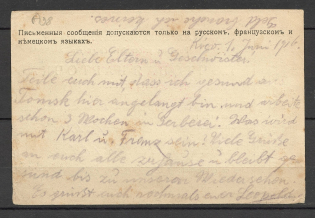 Письменныя сообщенія допускаются только на русскомъ, французскомъ и
нѣмецкомъ языкахъ.
Juni 1916.
Liebe Eltern u. Geschwister.
Teile euch mit, dass ich gesund in
Tomsk hier angelangt bin und arbeite
schon 3 Wochen in Gerberei. Was wird
mit Karl u. Franz sein? Viele Grüße
an euch alle zuhause u. bleibt ge
sund bis zu unserem Wiedersehen.
Es grüßt euch nochmals euer Leopold